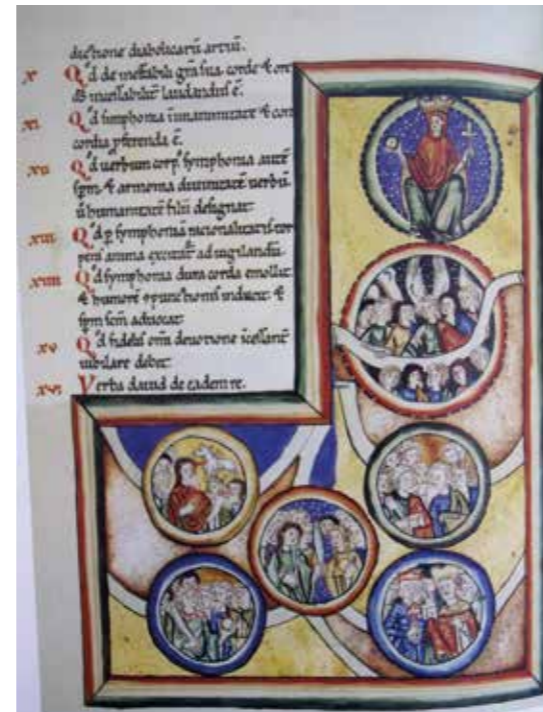 dictione diabolicarū artiū.
x Qd de ineffabili grā sua corde & ore
ds incessabilit laudandus ē.
xi Qd simphonia ī unanimitate & con
cordia pferenda ē.
xii Qd uerbum corp' symphonia autē
spm & armonia diuinitatē uerbū
ū humanitatē filii designat.
xiii Qd p symphonia racionalitatis tor
pens anima excitat ad uigilandū.
xiiii Qd symphonia dura corda emollit
& humorē cpunctionis inducit &
spm scm aduocat.
xv Qd fidelis omī deuotione īcessant
iubilare debet.
xvi Verba dauid de eadem re.